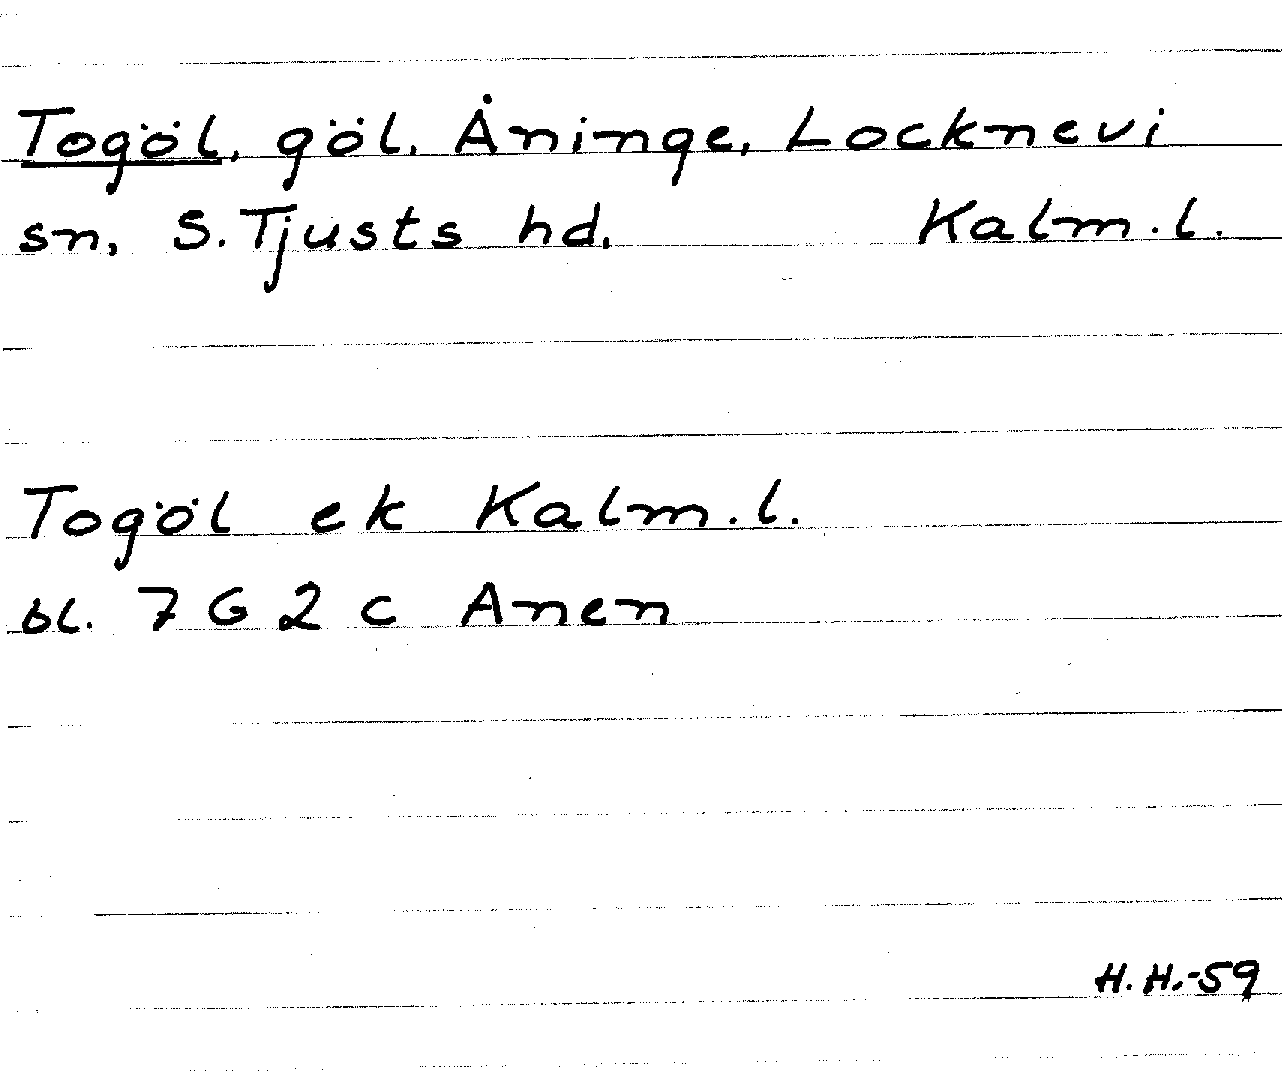 Togöl, göl, Åninge, Locknevi
sn, S. Tjusts hd. Kalm. l.
Togöl ek Kalm. l.
bl. 7 G 2 c Anen
H. H.-59